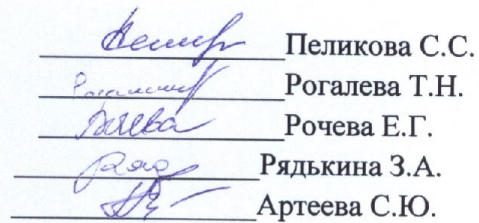 Пеликова С.С.
Рогалева Т.Н.
Рочева Е.Г.
Рядькина З.А.
Артеева С.Ю.